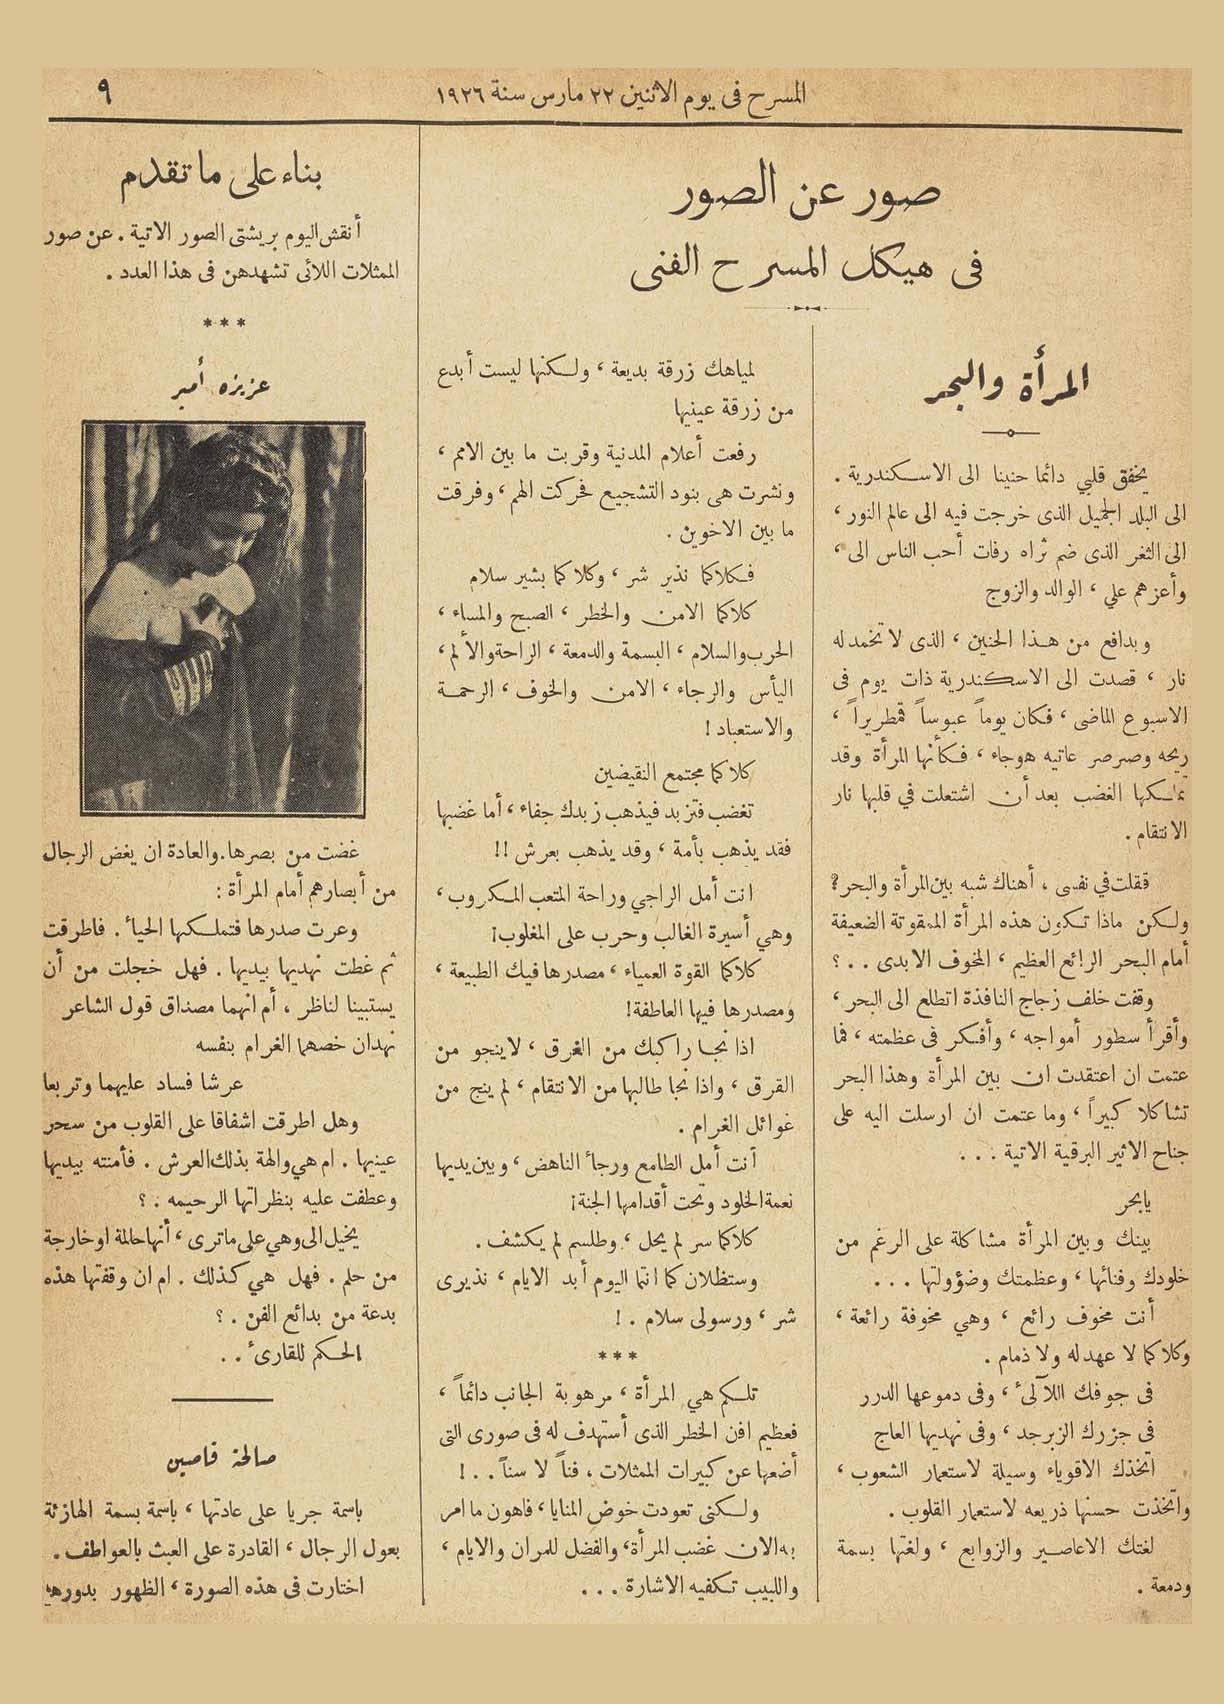 المسرح فى يوم الاثنين ٢٢ مارس سنة ١٩٢٦
٩
صور عن الصور
فى هيكل المسرح الفنى
المرأة والبحر
يخفق قلبي دائما حنينا الى الاسكندرية .
الى البلد الجميل الذى خرجت فيه الى عالم النور ،
الى الثغر الذى ضم ثراه رفات أحب الناس الى ،
وأعزهم علي ، الوالد والزوج
وبدافع من هذا الحنين ، الذى لا تخمد له
نار ، قصدت الى الاسكندرية ذات يوم فى
الاسبوع الماضى ، فكان يوماً عبوساً قمطريراً ،
ريحه وصرصر عاتيه هوجاء ، فكأنها المرأة وقد
تملكها الغضب بعد أن اشتعلت في قلبها نار
الانتقام .
فقلت في نفسى ، أهناك شبه بين المرأة والبحر ؟
ولكن ماذا تكون هذه المرأة الممقوتة الضعيفة
أمام البحر الرائع العظيم ، المخوف الابدى . . ؟
وقفت خلف زجاج النافذة اتطلع الى البحر ،
وأقرأ سطور أمواجه ، وأفكر فى عظمته ، فما
عتمت ان اعتقدت ان بين المرأة وهذا البحر
تشاكلا كبيراً ، وما عتمت ان ارسلت اليه على
جناح الاثير البرقية الاتية . . .
يابحر
بينك وبين المرأة مشاكلة على الرغم من
خلودك وفنائها ، وعظمتك وضؤولتها . . .
أنت مخوف رائع ، وهي مخوفة رائعة ،
وكلاكما لا عهد له ولا ذمام .
فى جوفك اللآلئ ، وفى دموعها الدرر
فى جزرك الزبرجد ، وفى نهديها العاج
اتخذك الاقوياء وسيلة لاستعمار الشعوب ،
واتخذت حسنها ذريعه لاستعمار القلوب .
لغتك الاعاصير والزوابع ، ولغتها بسمة
ودمعة .
لمياهك زرقة بديعة ، ولكنها ليست أبدع
من زرقة عينيها
رفعت أعلام المدنية وقربت ما بين الامم ،
ونشرت هى بنود التشجيع فحركت الهمم ، وفرقت
ما بين الاخوين .
فكلاكما نذير شر ، وكلاكما بشير سلام
كلاكما الامن والخطر ، الصبح والمساء ،
الحرب والسلام ، البسمة والدمعة ، الراحة والألم ،
اليأس والرجاء ، الامن والخوف ، الرحمة
والاستعباد !
كلاكما مجتمع النقيضين
تغضب فتزبد فيذهب زبدك جفاء ، أما غضبها
فقد يذهب بأمة ، وقد يذهب بعرش !!
انت أمل الراجي وراحة المتعب المكروب ،
وهي أسيرة الغالب وحرب على المغلوب !
كلاكما القوة العمياء ، مصدرها فيك الطبيعة ،
ومصدرها فيها العاطفة !
اذا نجا راكبك من الغرق ، لاينجو من
الفرق ، واذا نجا طالبها من الانتقام ، لم ينج من
غوائل الغرام .
أنت أمل الطامع ورجاء الناهض ، وبين يديها
نعمة الخلود وتحت أقدامها الجنة !
كلاكما سر لم يحل ، وطلسم لم يكشف .
وستظلان كما انتما اليوم أبد الايام ، نذيرى
شر ، ورسولى سلام . !
* * *
تلكم هي المرأة ، مرهوبة الجانب دائماً ،
فعظيم اذن الخطر الذى أستهدف له فى صورى التى
أضعها عن كبيرات الممثلات ، فناً لا سناً . . !
ولكنى تعودت خوض المنايا ، فاهون ما امر
به الان غضب المرأة ، والفضل للمران والايام ،
واللبيب تكفيه الاشارة . . .
بناء على ما تقدم
أنقش اليوم بريشتى الصور الاتية . عن صور
الممثلات اللائى تشهدهن فى هذا العدد .
* * *
عزيزه أمير
غضت من بصرها . والعادة ان يغض الرجال
من أبصارهم أمام المرأة :
وعرت صدرها فتملكها الحياء . فاطرقت
ثم غطت نهديها بيديها . فهل خجلت من أن
يستبينا لناظر ، أم انهما مصداق قول الشاعر
نهدان خصهما الغرام بنفسه
عرشا فساد عليهما وتربعا
وهل اطرقت اشفاقا على القلوب من سحر
عينيها . ام هي والهة بذلك العرش . فأمنته بيديها
وعطفت عليه بنظراتها الرحيمه . ؟
يخيل الى وهي على ماترى ، أنها حالمة او خارجة
من حلم . فهل هي كذلك . ام ان وقفتها هذه
بدعة من بدائع الفن . ؟
الحكم للقارئ . .
صالحة قاصين
باسمة جريا على عادتها ، باسمة بسمة الهازئة
بعول الرجال ، القادرة على العبث بالعواطف .
اختارت فى هذه الصورة ، الظهور بدورها